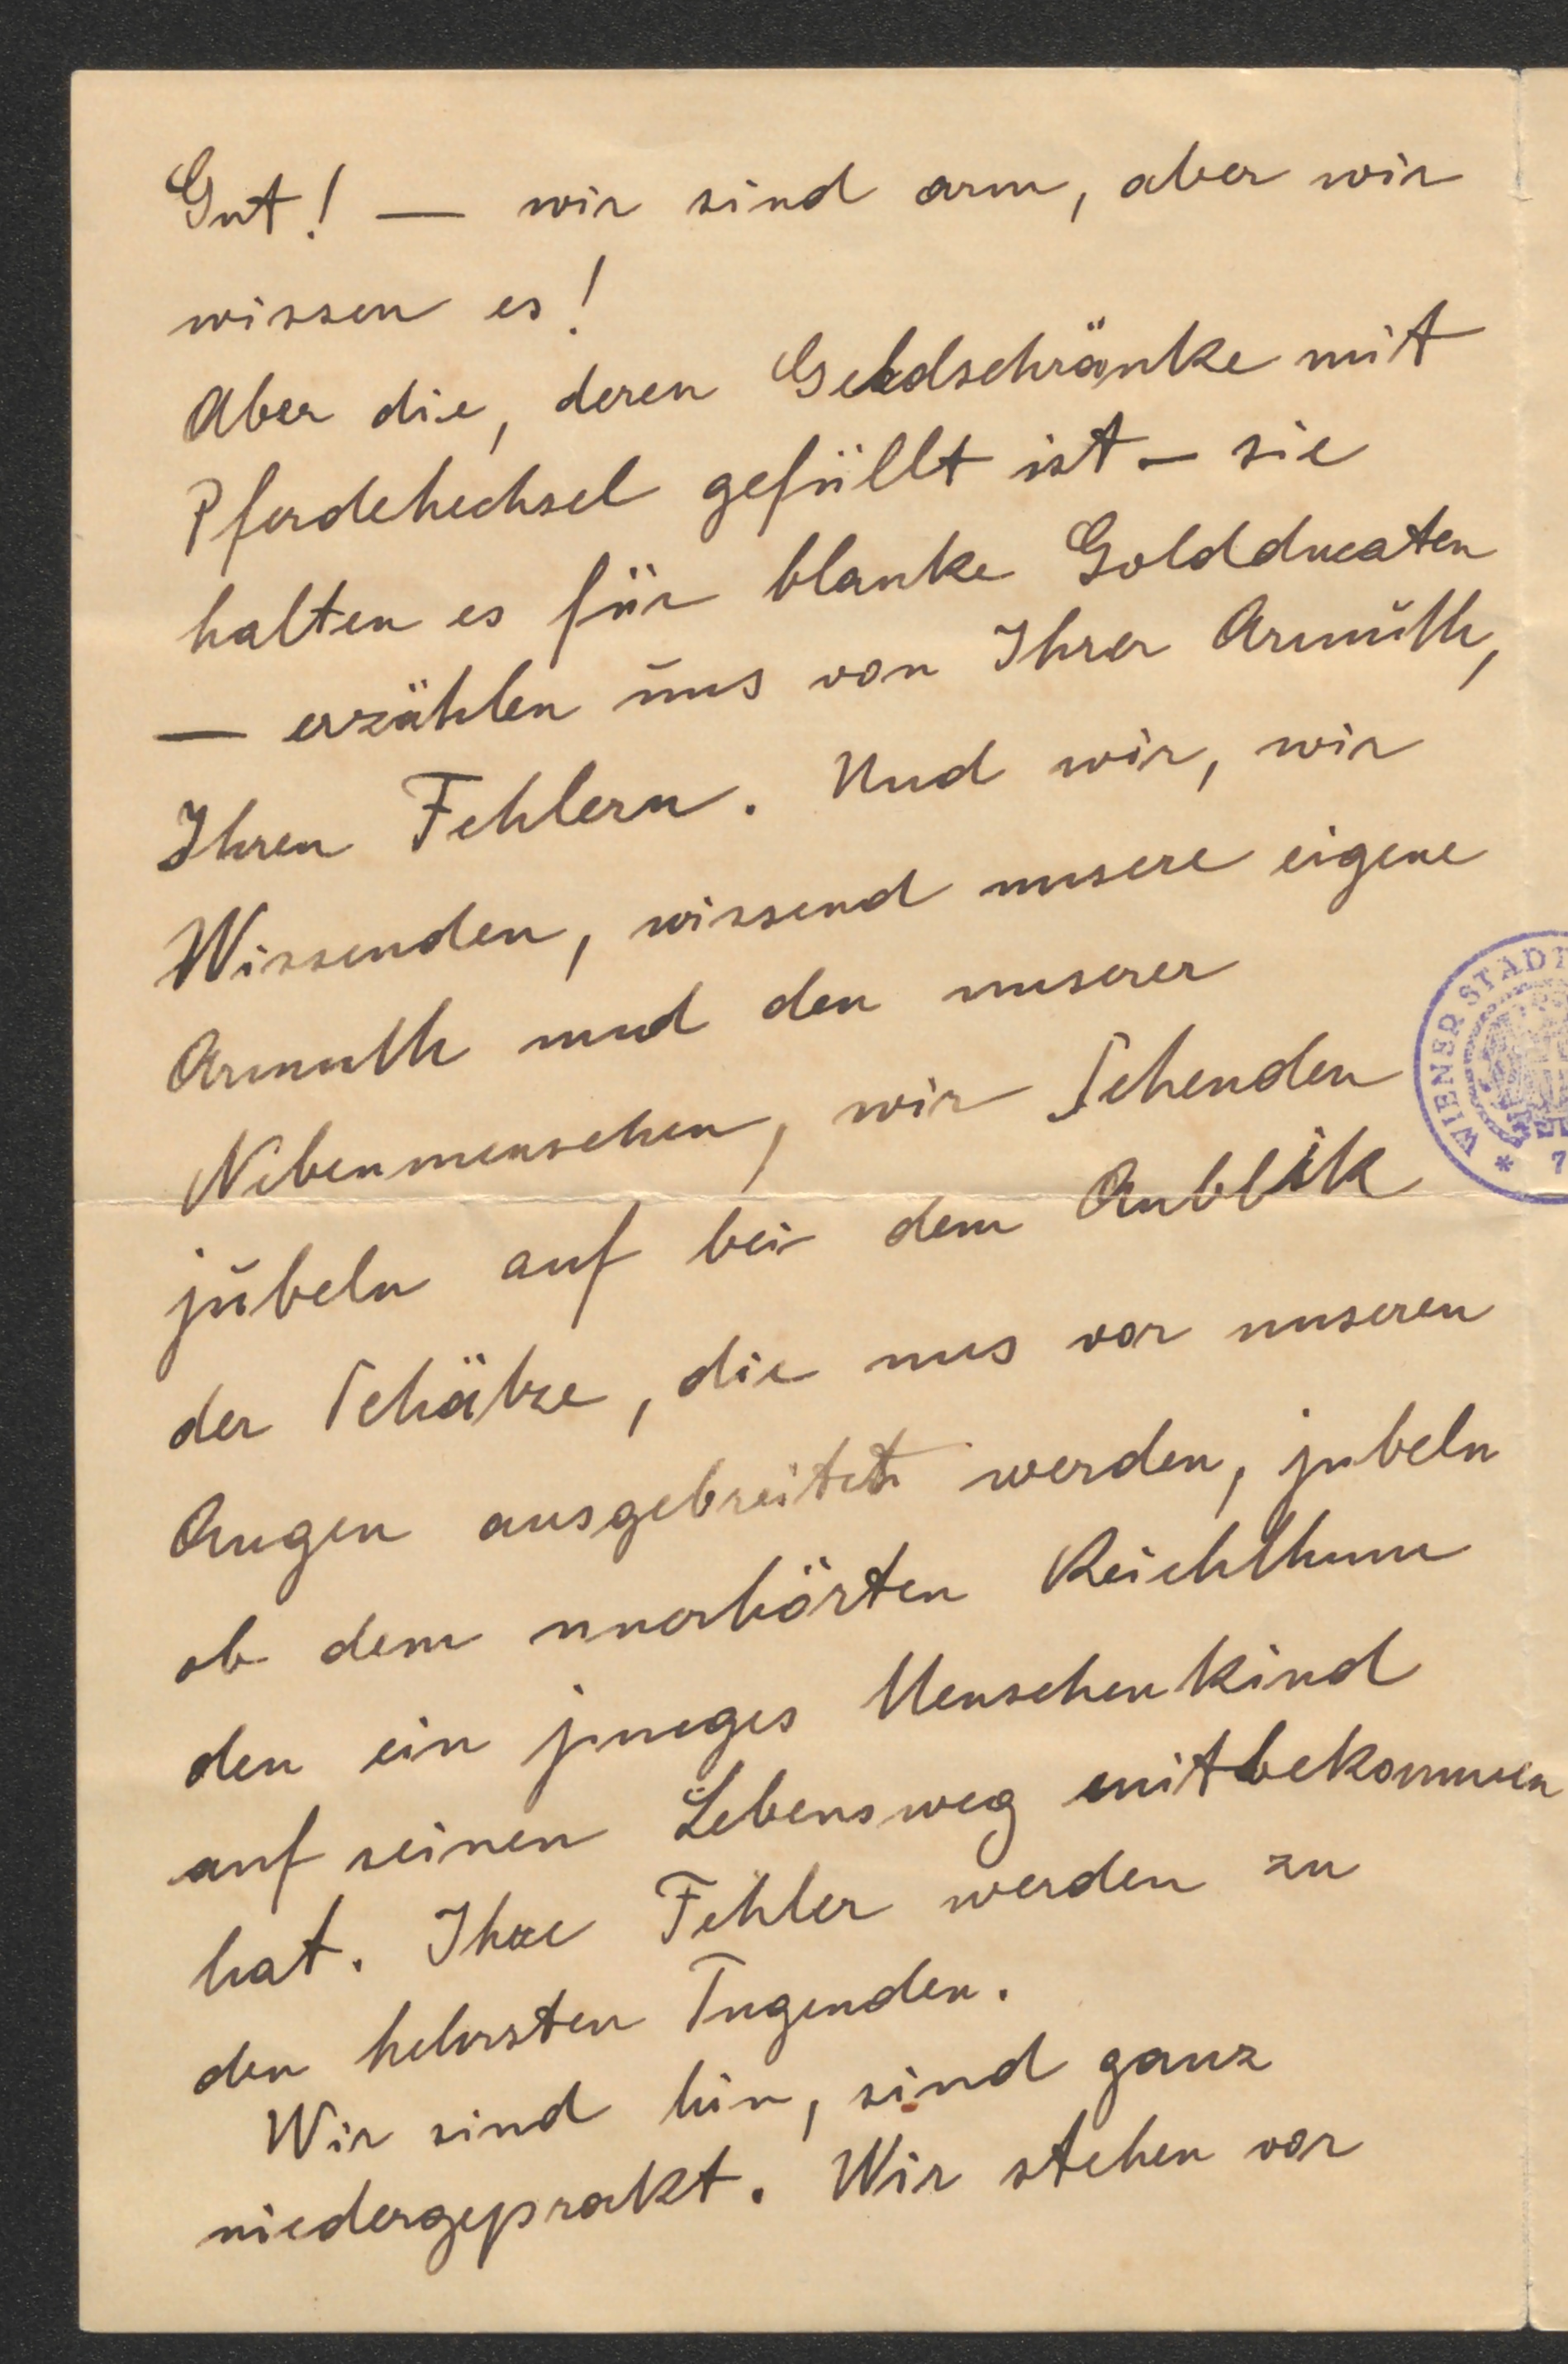 Gut! — wir sind arm, aber wir
wissen es!
Aber die, deren Geldschränke mit
Pferdehechsel gefüllt ist — sie
halten es für blanke Goldducaten
— erzählen uns von Ihrer Armuth,
Ihren Fehlern. Und wir, wir
Wissenden, wissend unsere eigene
Armuth und den unserer
Nebenmenschen, wir Sehenden
jubeln auf bei dem Anblik
der Schätze, die uns vor unseren
Augen ausgebreitet werden, jubeln
ob dem unerhörten Reichthum
den ein junges Menschenkind
auf seinen Lebensweg mitbekommen
hat. Ihre Fehler werden zu
den hehrsten Tugenden.
Wir sind hin, sind ganz
niedergeprakt. Wir stehen vor
WIENER STADT
* 7